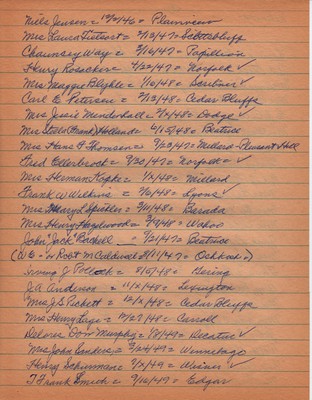 Niels Jensen = 10/2/46 = Plainview
Mrs Laura Tietsort = 2/13/47 = Scottsbluff
Chauncey Way = 3/16/47 = Papillion
Henry Rosacker = 4/22/47 = Norfolk ✓
Mrs Maggie Blyhle = 1/10/48 = Scribner ✓
Carl E Petersen = 2/13/48 = Cedar Bluffs
Mrs Jessie Mendenhall = 2/x/48 = Dodge ✓
Mrs Stella (Frank) Holland = 6/15/48 = Beatrice
Mrs Hans F Thomsen = 9/23/47 = Millard - Pleasant Hill
Fred Ellerbrock = 9/30/47 = Norfolk ✓
Mrs Herman Kopke = 1/x/48 = Millard
Frank W Wilkins = 3/6/48 = Lyons ✓
Mrs Mary L Spickler = 3/11/48 = Barada
Mrs Henry Hagelwood = 3/9/48 = Wahoo
John "Jack" = 9/21/47 = Beatrice
(W E = or Robt McCaldwell 8/11/47 = Oshkosh ✓)
Irving J Pollock = 8/5/48 = Gering
J.A. Anderson = 11/x/48 = Lexington
Mrs J S Pickett = 12/x/48 = Cedar Bluffs
Mrs Henry Tage = 12/27/48 = Carroll
Delores Don Murphy = 1/8/49 = Decatur ✓
Mrs John Sanders = 2/24/49 = Winnebago
Henry Schurman = 2/x/49 = Wisner ✓
T Frank Smith = 9/12/49 = Edgar